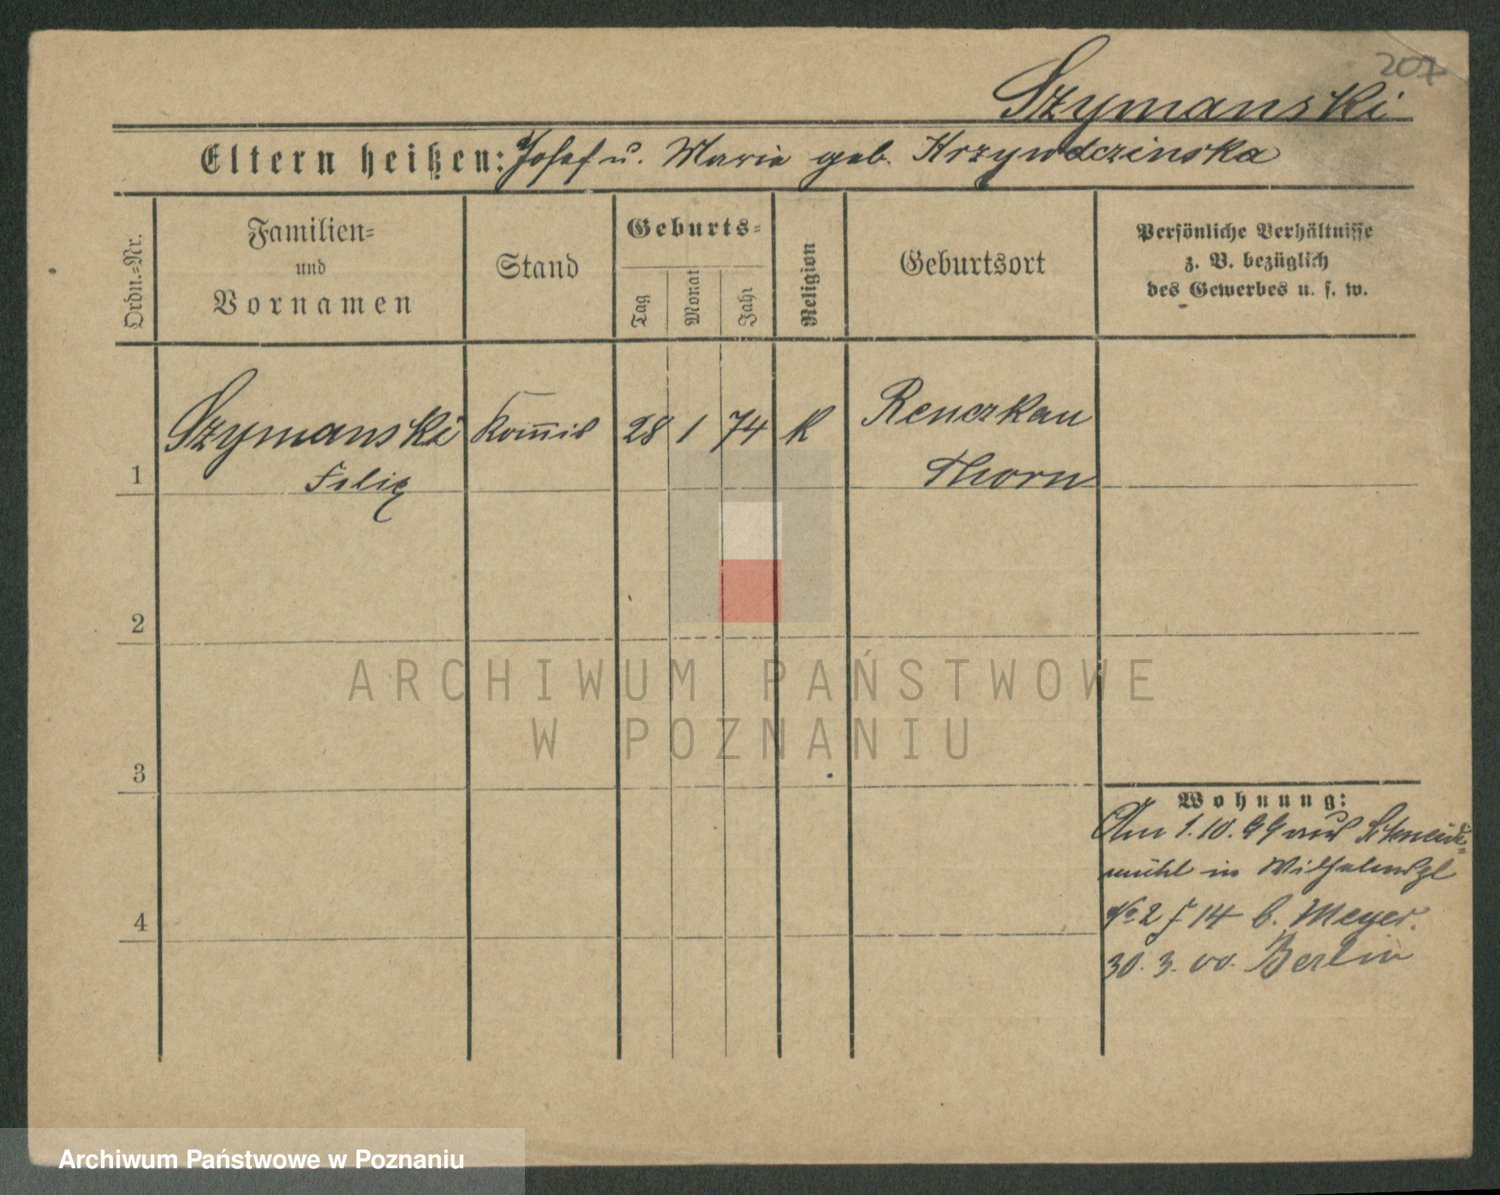 207
Szymanski
Eltern heißen: Josef u. Maria geb.
Ordn.-Nr.
Familien-
und
Vornamen
Stand
Geburts-
Tag
Monat
Jahr
Religion
Geburtsort
Persönliche Verhältnisse
z. B. bezüglich
des Gewerbes u. s. w.
1
Szymanski
Felix
Kom̅is
28
1
74
K
Renczkau
Thorn
2
3
4
ARCHIWUM PAŃSTWOWE
W POZNANIU
Wohnung:
Am 1.10.99 aus Schneide-
mühl in
No 2 14 b. Meyer.
30.3.00. Berlin
Archiwum Państwowe w Poznaniu